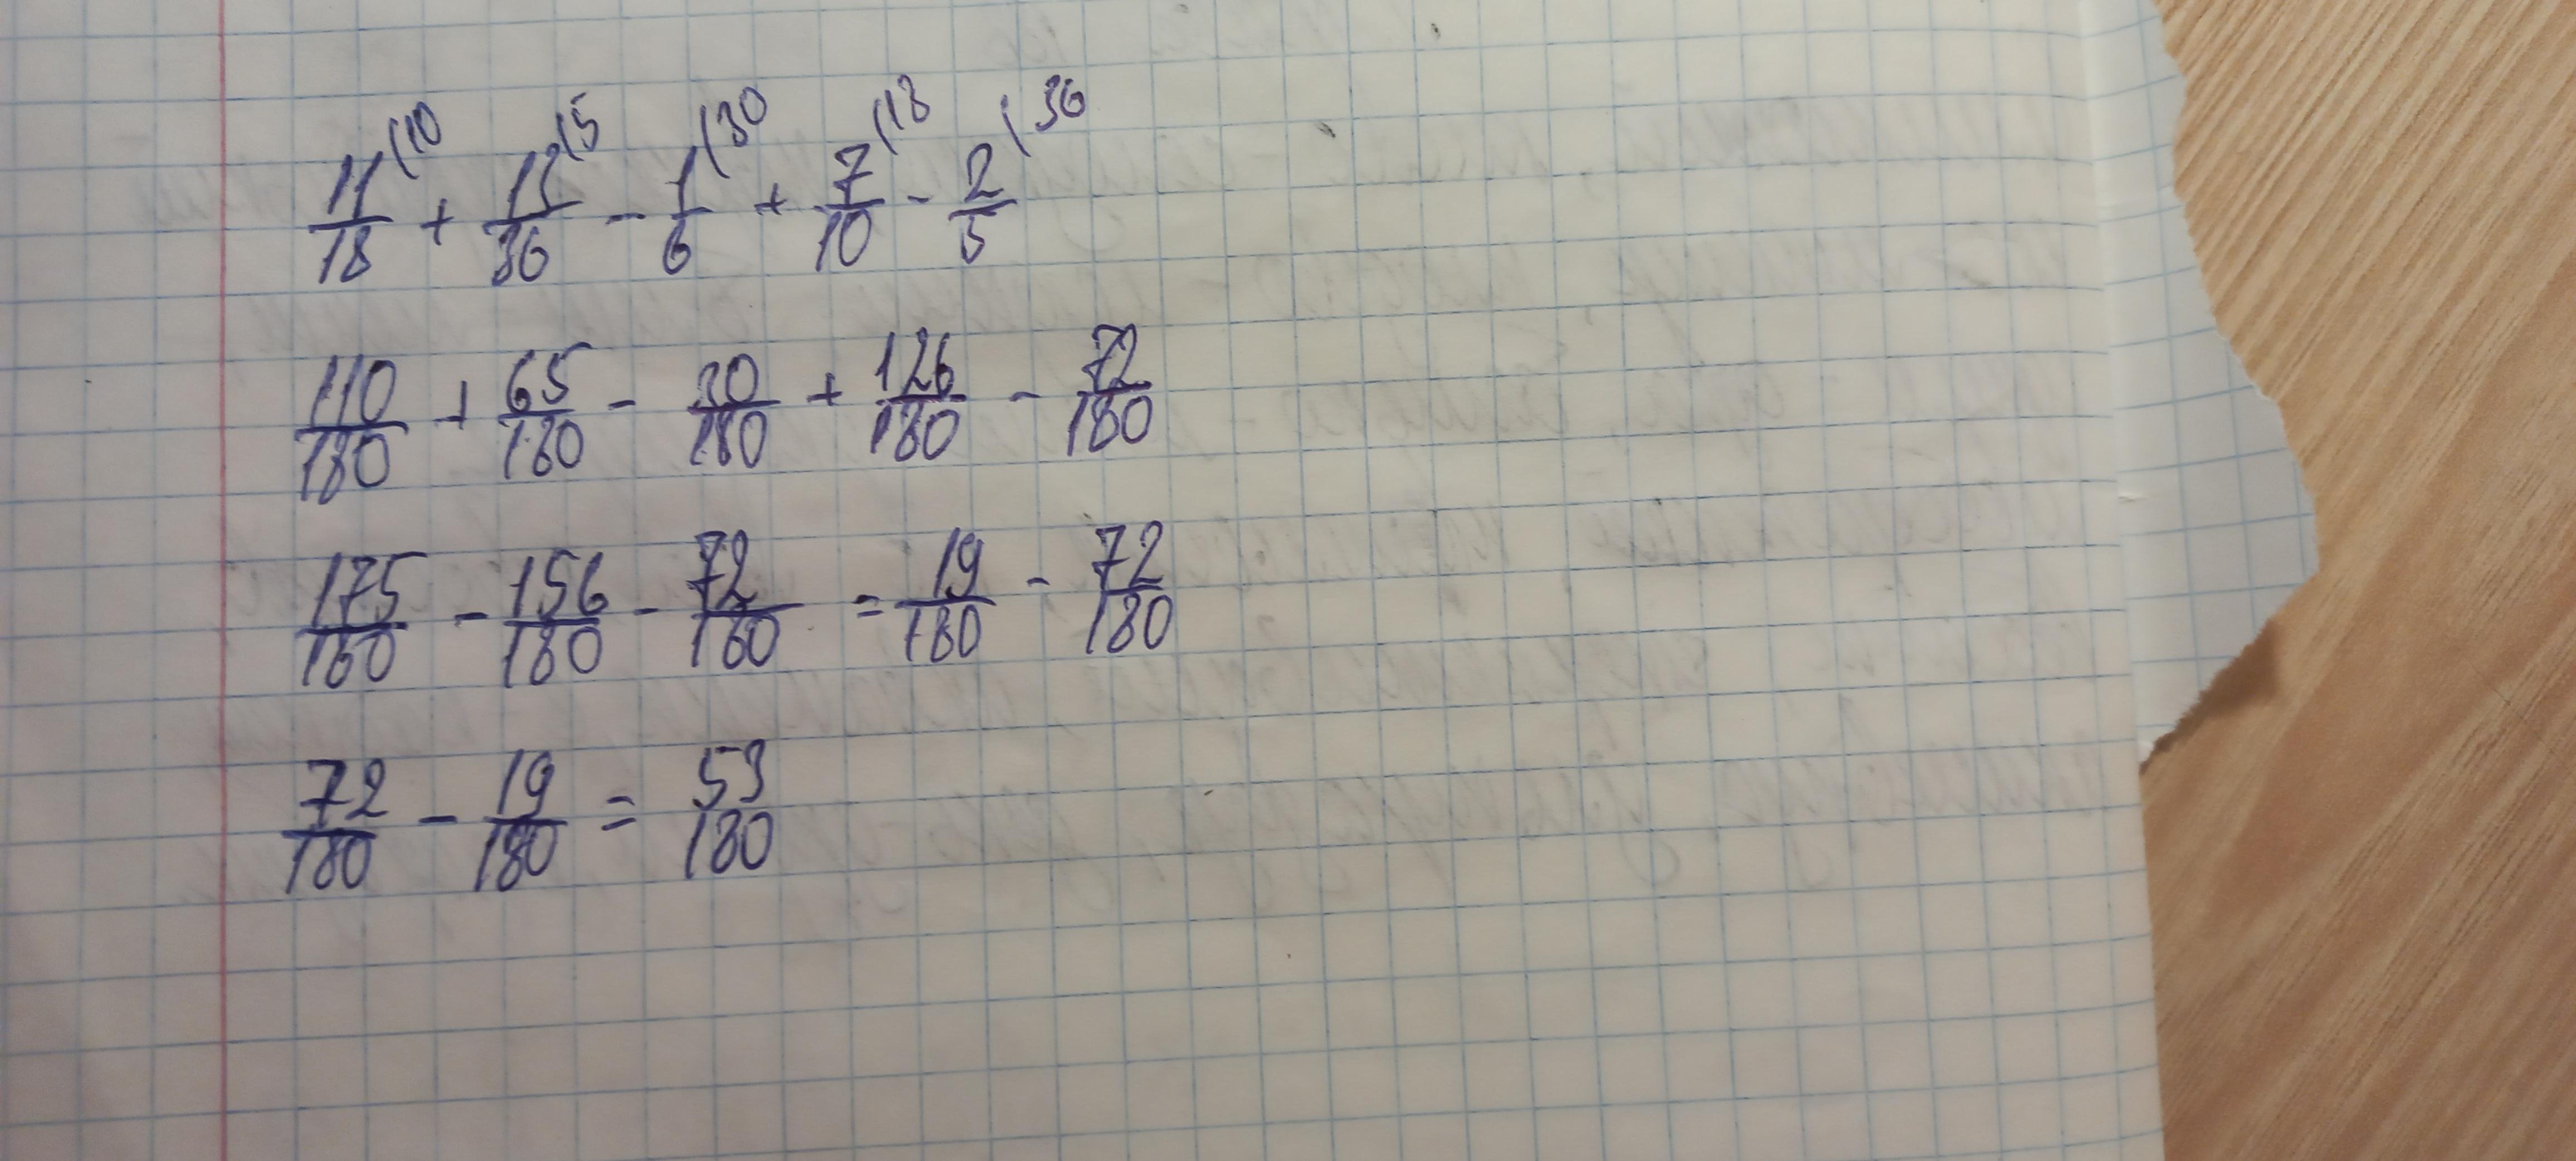 11/18 (10 + 13/36 (5 - 1/6 (30 + 7/10 (18 - 2/5 (36
110/180 + 65/180 - 30/180 + 126/180 - 72/180
175/180 - 156/180 - 72/180 = 19/180 - 72/180
72/180 - 19/180 = 53/180